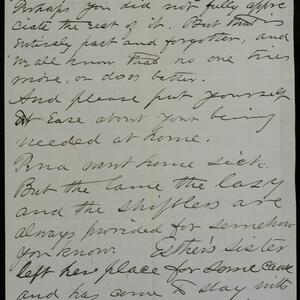 Perhaps you did not fully appre
ciate the rest of it. But that is
entirely past and forgotten, and
we all know that no one tries
more, or does better.
And please put yourself
at Ease about your being
needed at home.
went home sick.
But the lame the lazy
and the shiftless are
always provided for somehow
you know. Esther's sister
left her place for some cause
and has come to stay with